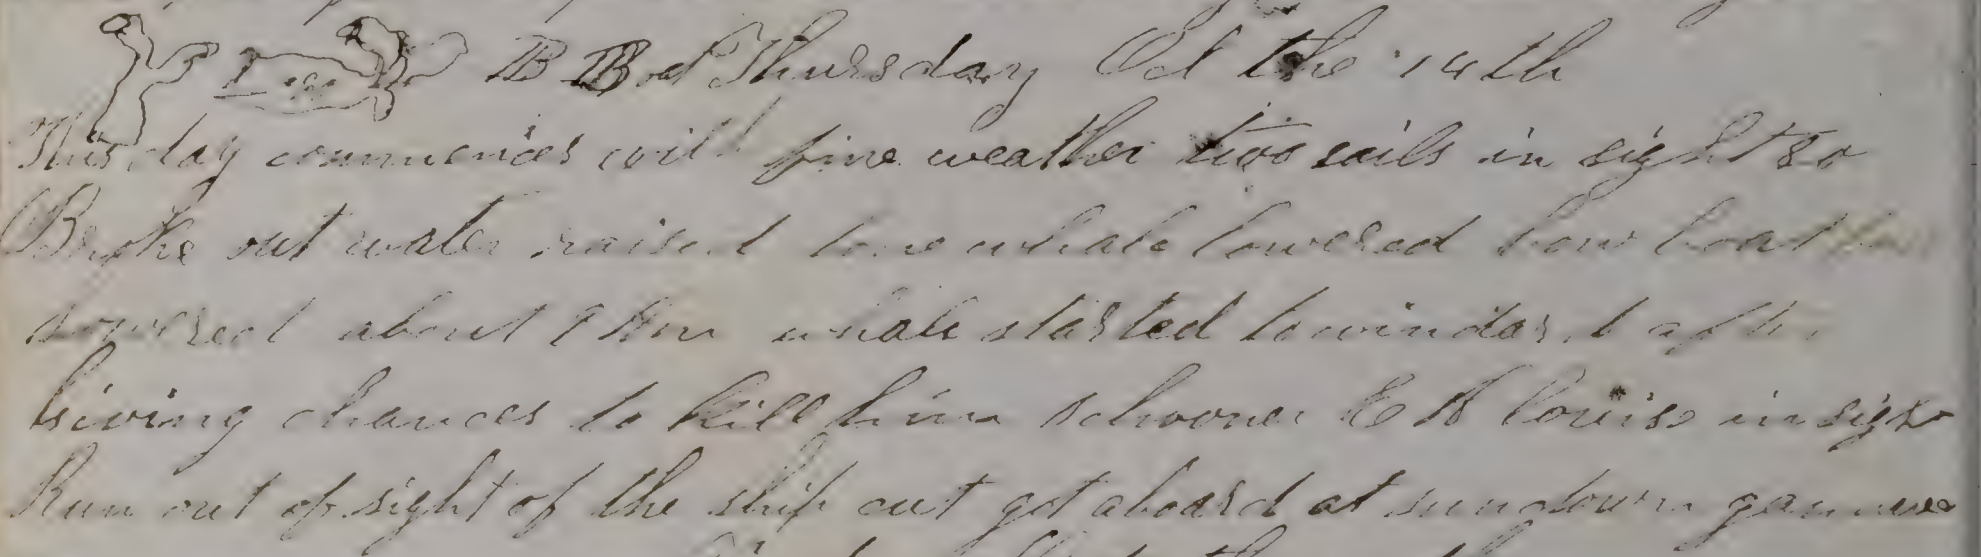 B B of Thursday Oct the 14th
This day commences with fine weather two sails in sight so
Broke out water raised lone whale lowered bow boat
lowered about 9 Am whale started to windard after
giving chances to kill him schooner E H in sigh
Run out of sight of the ship cut got aboard at sundown